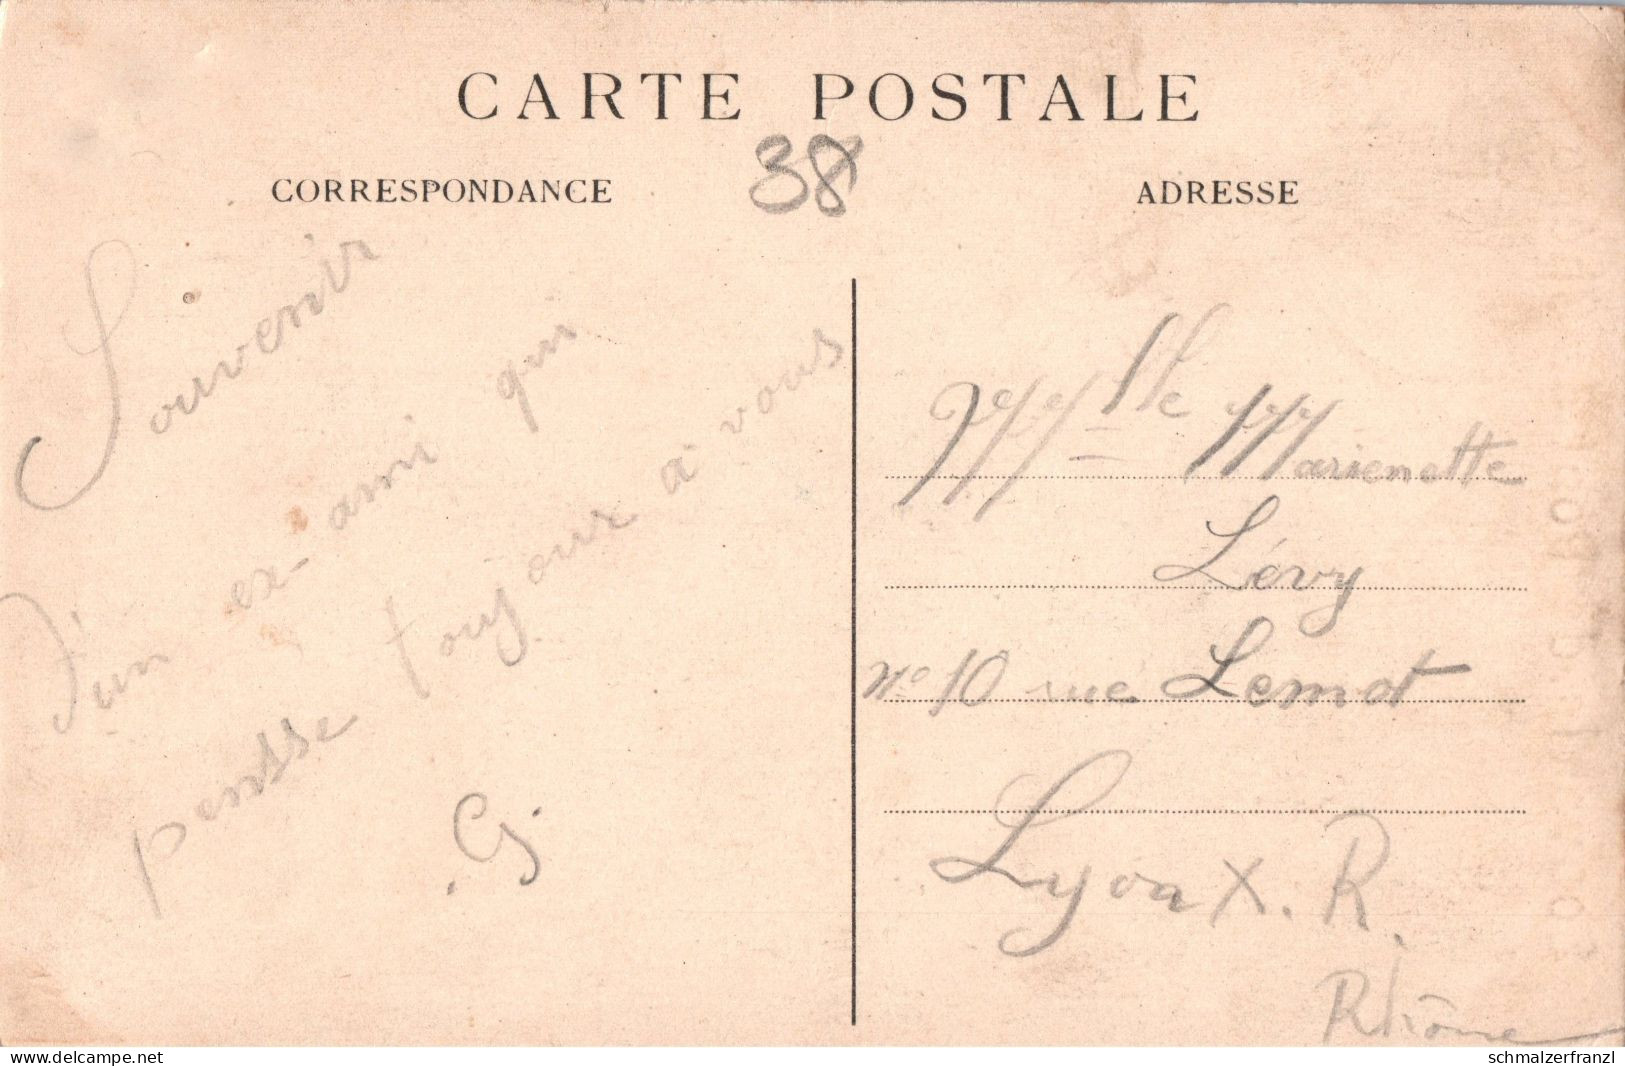 CARTE POSTALE
38
CORRESPONDANCE
ADRESSE
Souvenir
d'un ex-ami qui
pensse toujour a vous
.G.
Mlle Marienette
Lévy
No 10 rue Lemot
Lyon X. R.
Rhône
www.delcampe.net
schmalzerfranzl